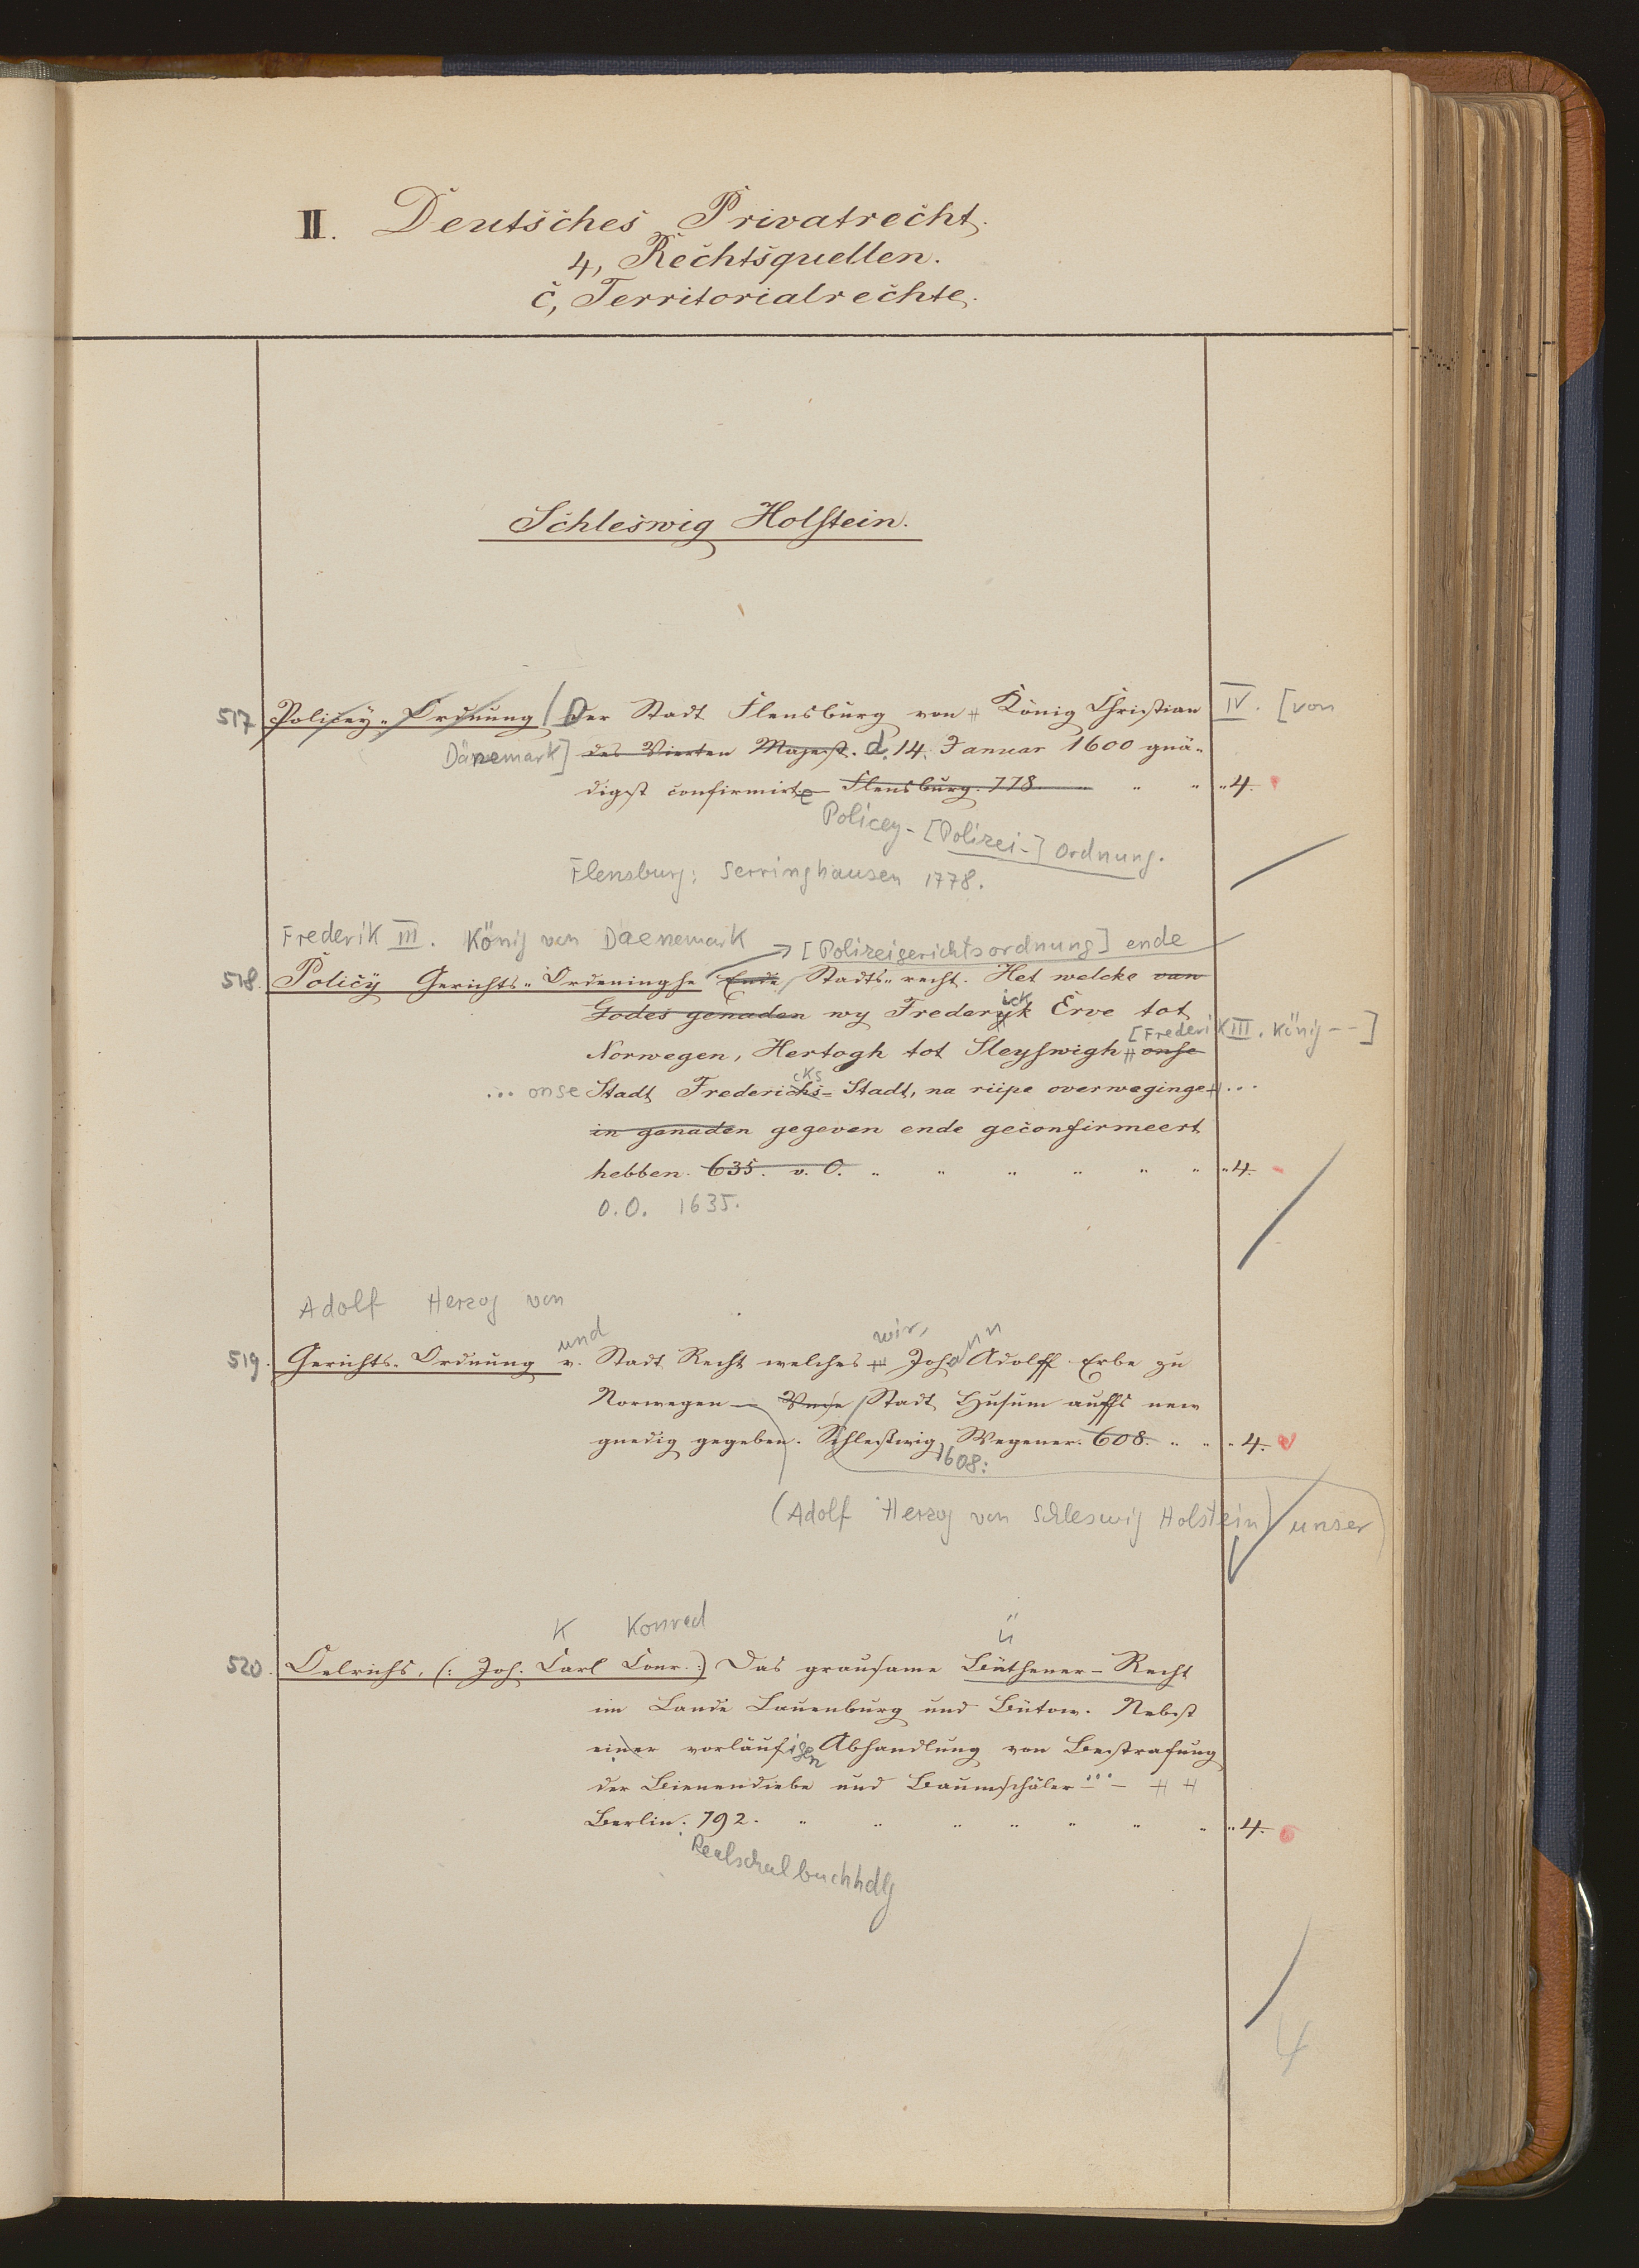 II. Deutsches Privatrecht.
4, Rechtsquellen.
c, Territorialrechte.
Schleswig Holstein.
517 Policey-Ordnung / Der Stadt Flensburg von # König Christian IV. [von
Dänemark] des Vierten Majest. d. 14. Januar 1600 gnä-
digst confirmirte Flensburg. 778. " " " 4.
Policey-[Polizei-] Ordnung.
Flensburg: Serringhausen 1778.
Frederik III. König von Daenemark → [Polizeigerichtsordnung] ende
518. Policÿ Gerichts-Ordeninghe Ende / Stadts-recht. Het welcke van
Godes genaden wy Frederyk ick Erve tot
[Frederik III. König --]
Norwegen, Hertogh tot Sleyswigh # onse
... onse Stadt Frederichs cks = Stadt, na riipe overweginge # ...
in genaden gegeven ende geconfirmeert
hebben. 635. o. O. " " " " " " " 4.
O.O. 1635.
Adolf Herzog von
und wir,
519. Gerichts-Ordnung v. Stadt Recht welches # Johann Adolff Erbe zu
Norwegen — Unse / Stadt Husum auffs new
gnedig gegeben. Schleßwig, Wegener. 608. " " " 4.
1608:
(Adolf Herzog von Schleswig Holstein) unser
K Konrad ü
520. Oelrichs, (: Joh. Carl Conr. :) Das grausame Büthener-Recht
im Lande Lauenburg und Bütow. Nebst
einer vorläufigen Abhandlung von Bestrafung
der Bienendiebe und Baumschäler ... — # #
Berlin. 792. " " " " " " " " 4.
Realschulbuchhdlg
4